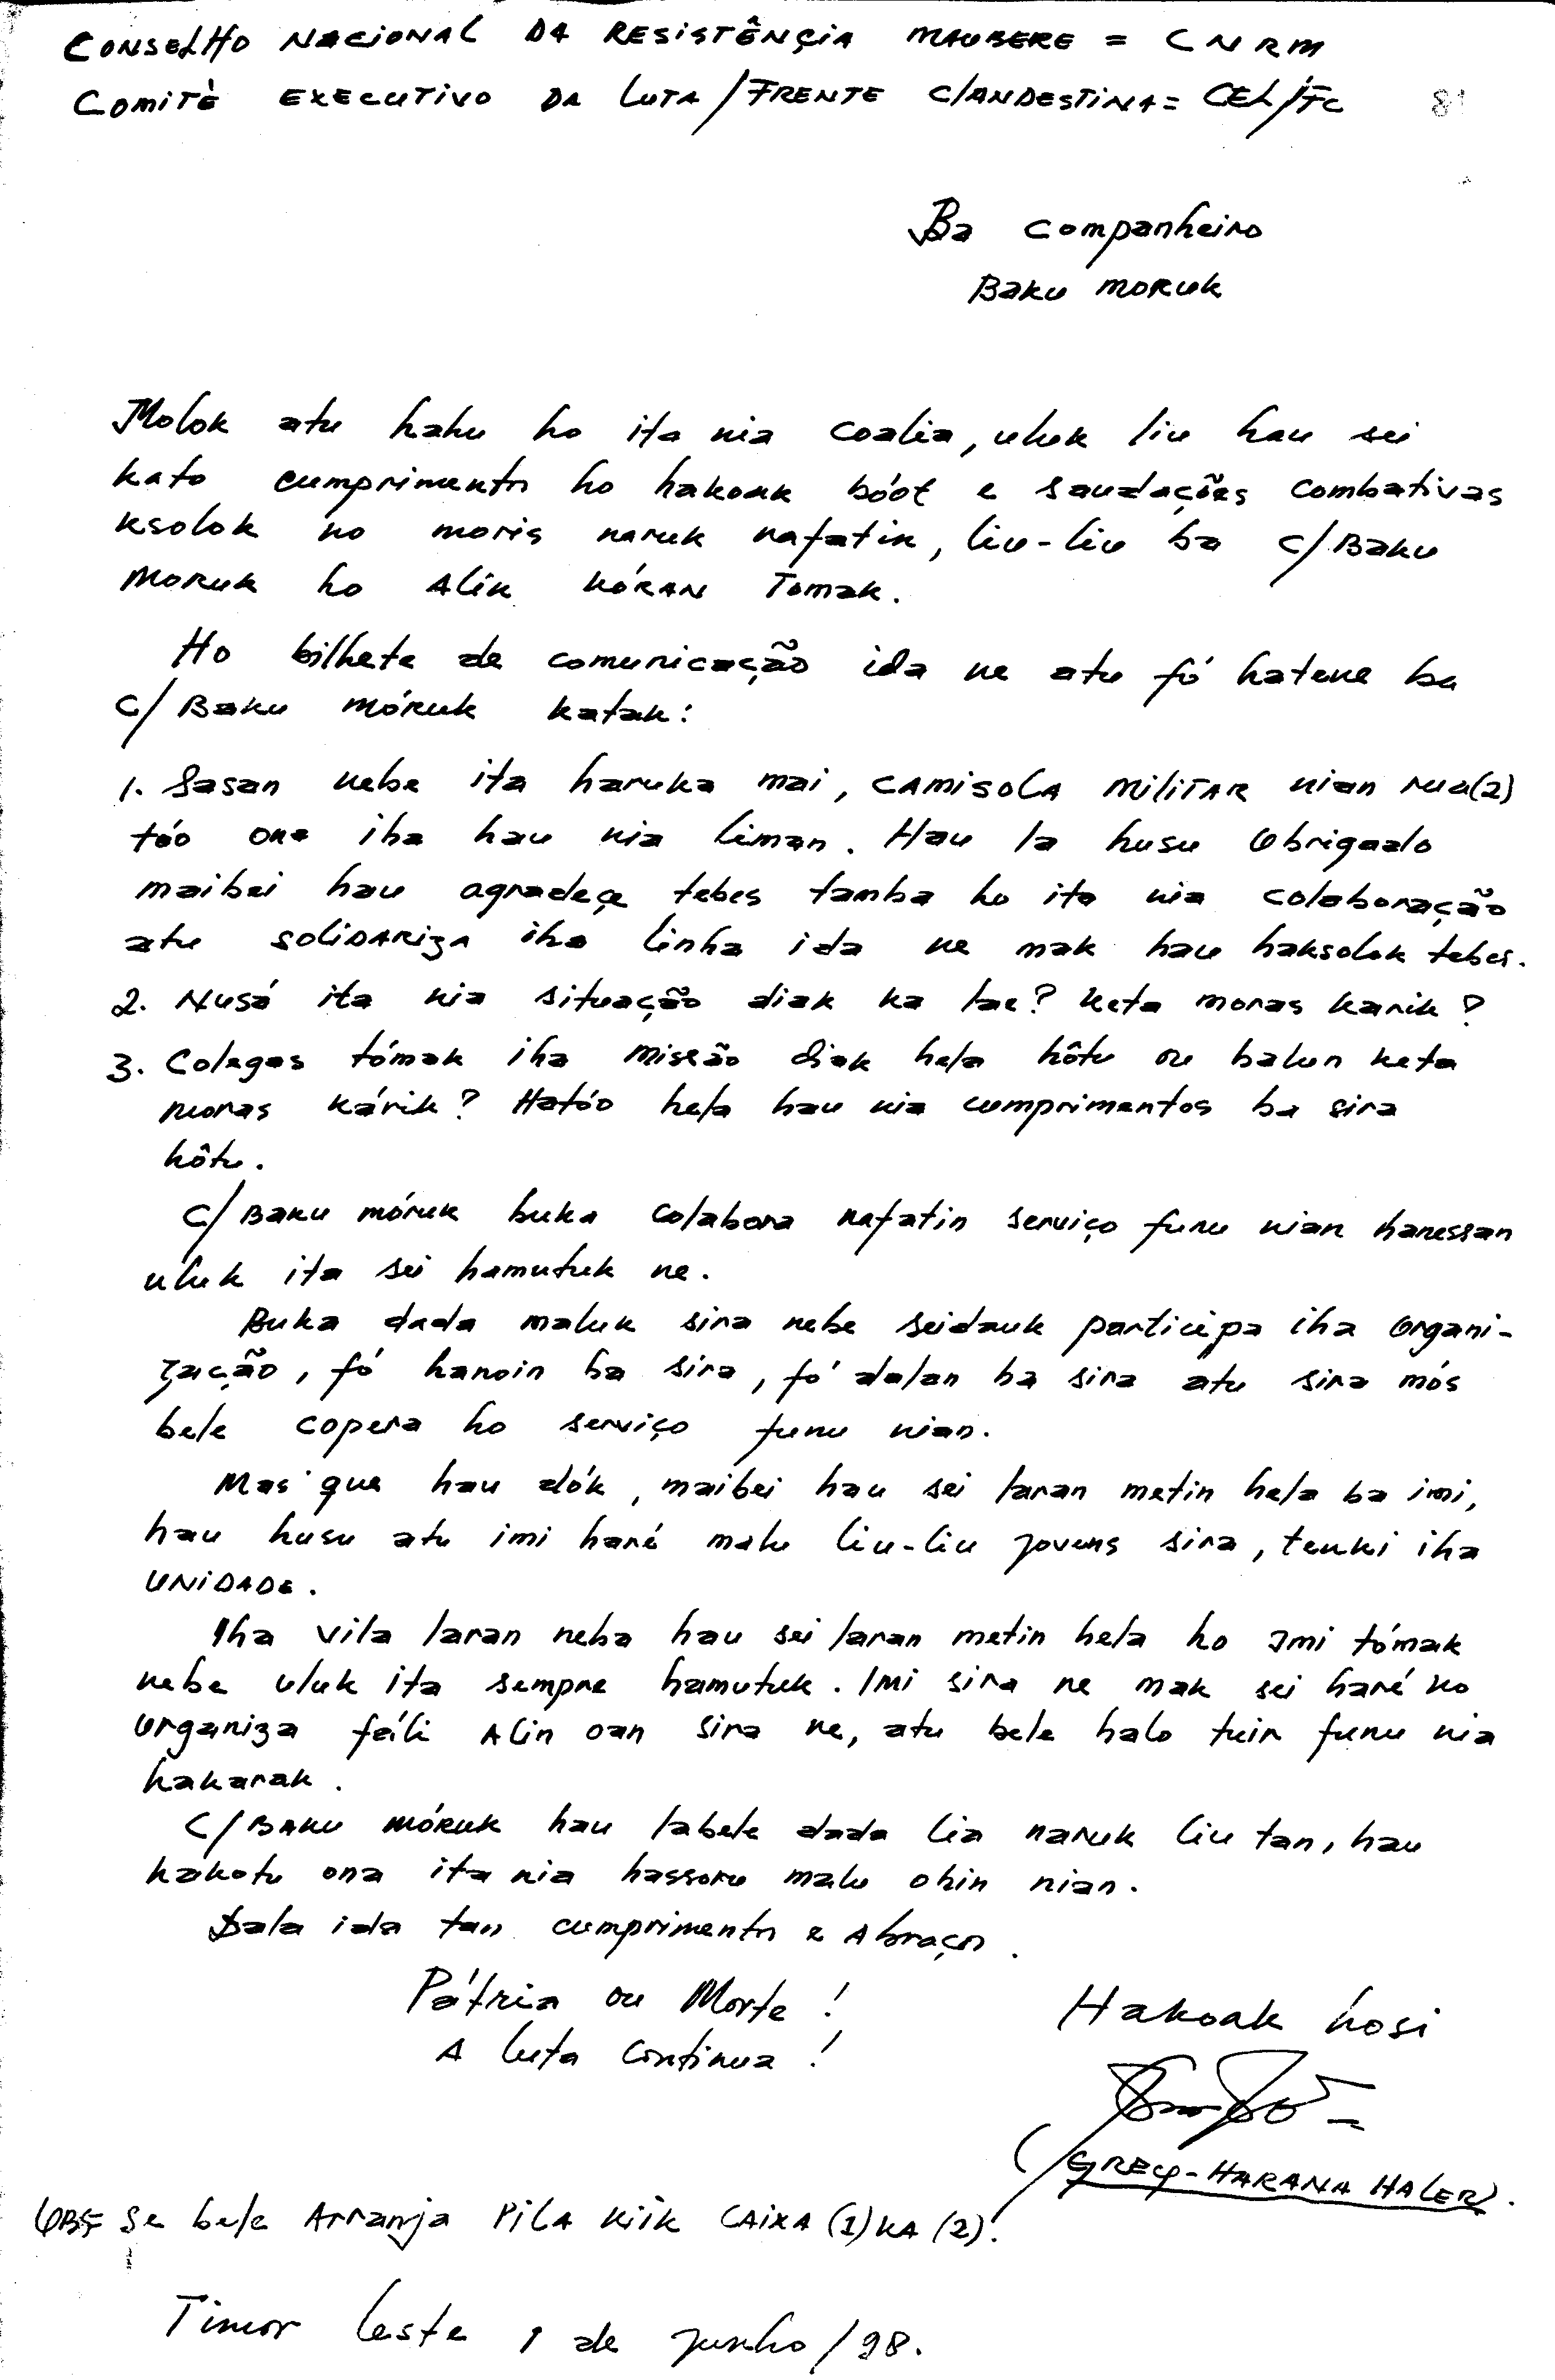 CONSELHO NACIONAL DA RESISTÊNÇIA MAUBERE = CNRM
COMITÈ EXECUTIVO DA LUTA/FRENTE CLANDESTINA = CEL/FC
81
Ba Companheiro
BAKU MORUK
Molok atu hahu ho ita nia coalia, uluk liu hau sei
kato cumprimentos ho hakoak bóot e saudações combativas
ksolok no moris naruk nafatin, liu-liu ba C/BAKU
MORUK ho ALIN KÓRAN Tomak.
Ho bilhete de comunicação ida ne atu fó hatene ba
C/BAKU MÓRUK katak:
1. Sasan nebe ita haruka mai, CAMISOLA MILITAR nian rua(2)
tóo ona iha hau nia liman. Hau la husu Obrigado
maibei hau agradeçe tebes tamba ho ita nia colaboração
atu SOLIDARIZA iha linha ida ne mak hau haksolok tebes.
2. Nusá ita nia situação diak ka lae? Keta moras karik?
3. Colegas tómak iha missão diak hela hôtu ou balun keta
moras kárik? Hatóo hela hau nia cumprimentos ba sira
hôtu.
C/BAKU MÓRUK buka colabora nafatin serviço funu nian hanessan
uluk ita sei hamutuk ne.
Buka dada maluk sira nebe seidauk participa iha organi-
zação, fó hanoin ba sira, fó dalan ba sira atu sira mós
bele copera ho serviço funu nian.
Mas que hau dók, maibei hau sei laran metin hela ba imi,
hau husu atu imi haré malu liu-liu jovens sira, tenki iha
UNIDADE.
Iha vila laran neba hau sei laran metin hela ho Imi tómak
nebe uluk ita sempre hamutuk. Imi sira ne mak sei haré no
organiza fáli Alin oan sira ne, atu bele halo tuir funu nia
hakarak.
C/BAKU MÓRUK hau labele dada lia naruk liu tan, hau
hakotu ona ita nia hassoru malu ohin nian.
Dala ida tan cumprimentos e Abraços.
Pátria ou Morte!
A luta Continua!
Hakoak hosi
(GREY-HARANA HALER).
OBS Se bele Arranja PILA KIIK CAIXA (1) KA (2).
Timor Leste 1 de Junho/98.